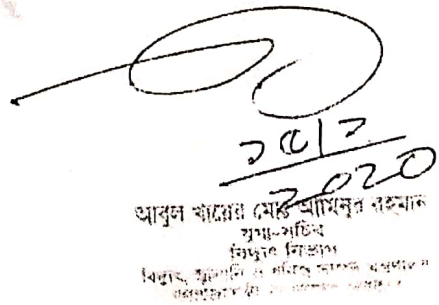 ১৫/১
২০২০
আবুল খায়ের মোঃ আমিনুর রহমান
যুগ্ম-সচিব
বিদ্যুৎ বিভাগ
বিদ্যুৎ, জ্বালানি ও খনিজ সম্পদ মন্ত্রণালয়